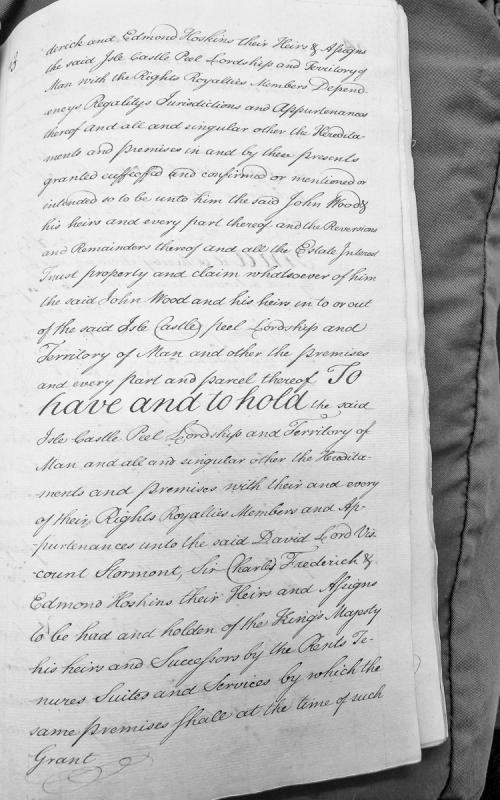 derick and Edmond Hoskins their Heirs & Assigns
the said Isle Castle Peel Lordship and Territory of
Man with the Rights Royalties Members Depend-
encys Regalitys Jurisdictions and Appurtenances
thereof and all and singular other the Heredita-
ments and premises in and by these presents
granted enffeoffed and confirmed or mentioned or
intended so to be unto him the said John Wood &
his heirs and every part thereof and the Reversions
and Remainders thereof and all the Estate Interest
Trust property and claim whatsoever of him
the said John Wood and his heirs in to or out
of the said Isle Castle peel Lordship and
Territory of Man and other the premises
and every part and parcel thereof To
have and to hold the said
Isle Castle Peel Lordship and Territory of
Man and all and singular other the Heredita-
ments and premises with their and every
of their Rights Royalties Members and Ap-
purtenances unto the said David Lord Vis-
count Stormont, Sir Charles Frederick &
Edmond Hoskins their Heirs and Assigns
to be had and holden of the King's Majesty
his heirs and Successors by the Rents Te-
nures Suites and Services by which the
same premises shall at the time of such
Grant